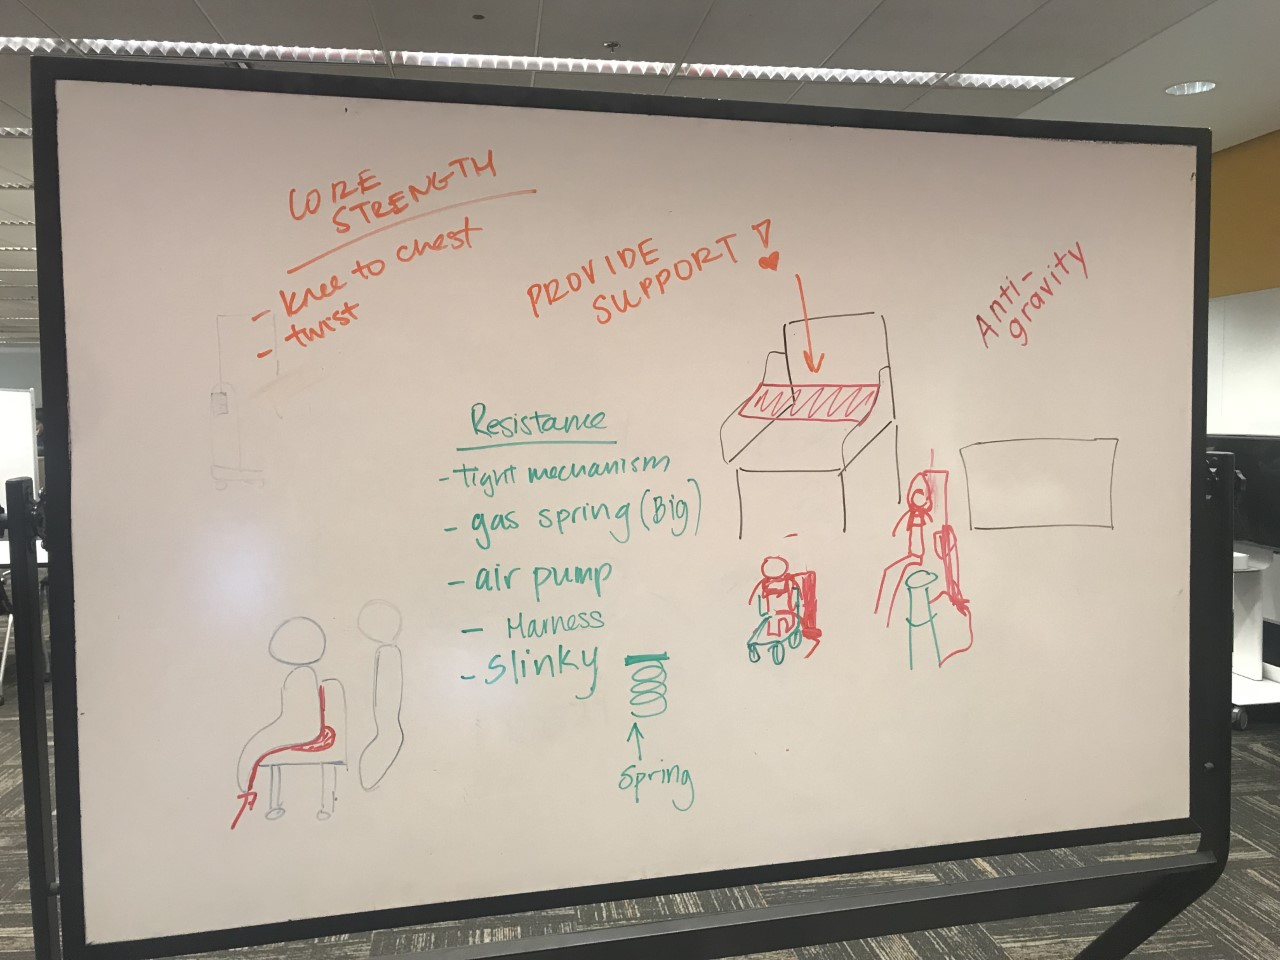 CORE
STRENGTH
- knee to chest
- twist
PROVIDE
SUPPORT!
Anti-
gravity
Resistance
- tight mechanism
- gas spring (Big)
- air pump
- Harness
- slinky
spring